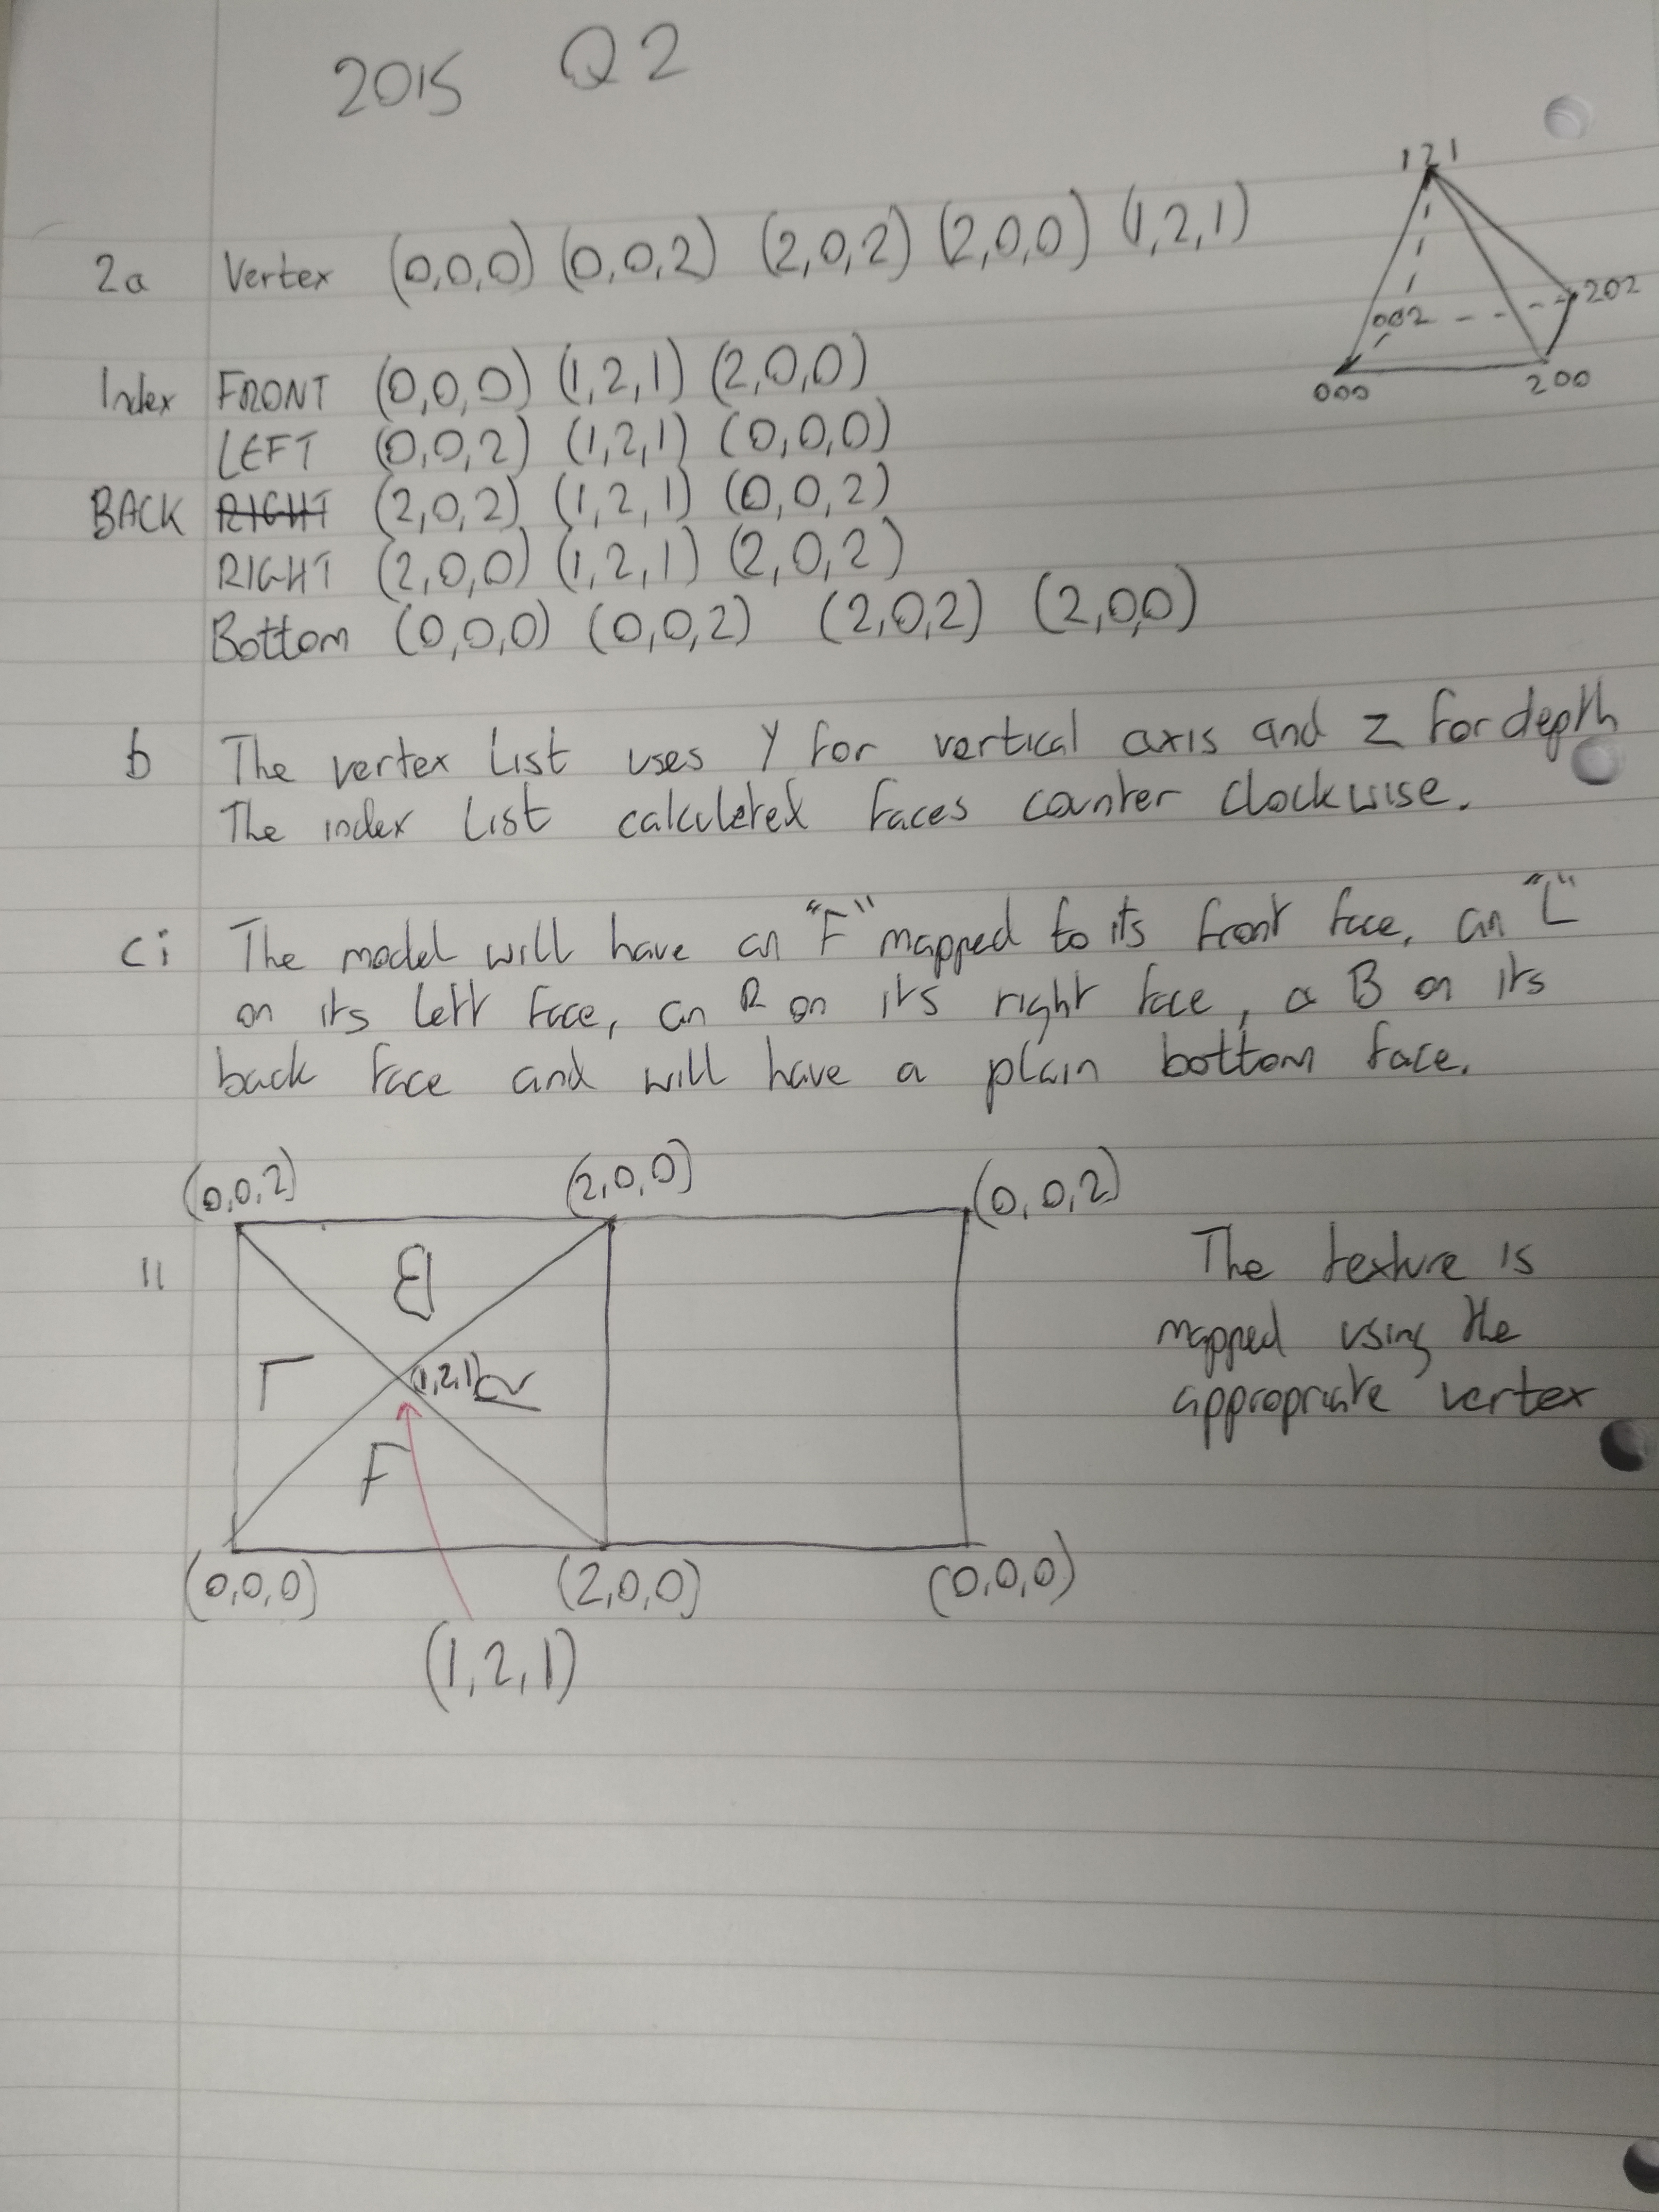 2015 Q2
121
2a Vertex (0,0,0) (0,0,2) (2,0,2) (2,0,0) (1,2,1)
202
002
000
200
Index FRONT (0,0,0) (1,2,1) (2,0,0)
LEFT (0,0,2) (1,2,1) (0,0,0)
BACK RIGHT (2,0,2) (1,2,1) (0,0,2)
RIGHT (2,0,0) (1,2,1) (2,0,2)
Bottom (0,0,0) (0,0,2) (2,0,2) (2,0,0)
b The vertex List uses Y for vertical axis and Z for depth
The index List calculated faces counter clockwise.
ci The model will have an "F" mapped to its front face, an "L"
on its left face, an R on its right face, a B on its
back face and will have a plain bottom face.
(0,0,2) (2,0,0) (0,0,2)
ii
B
L
(1,2,1) R
F
The texture is
mapped using the
appropriate vertex
(0,0,0) (2,0,0) (0,0,0)
(1,2,1)